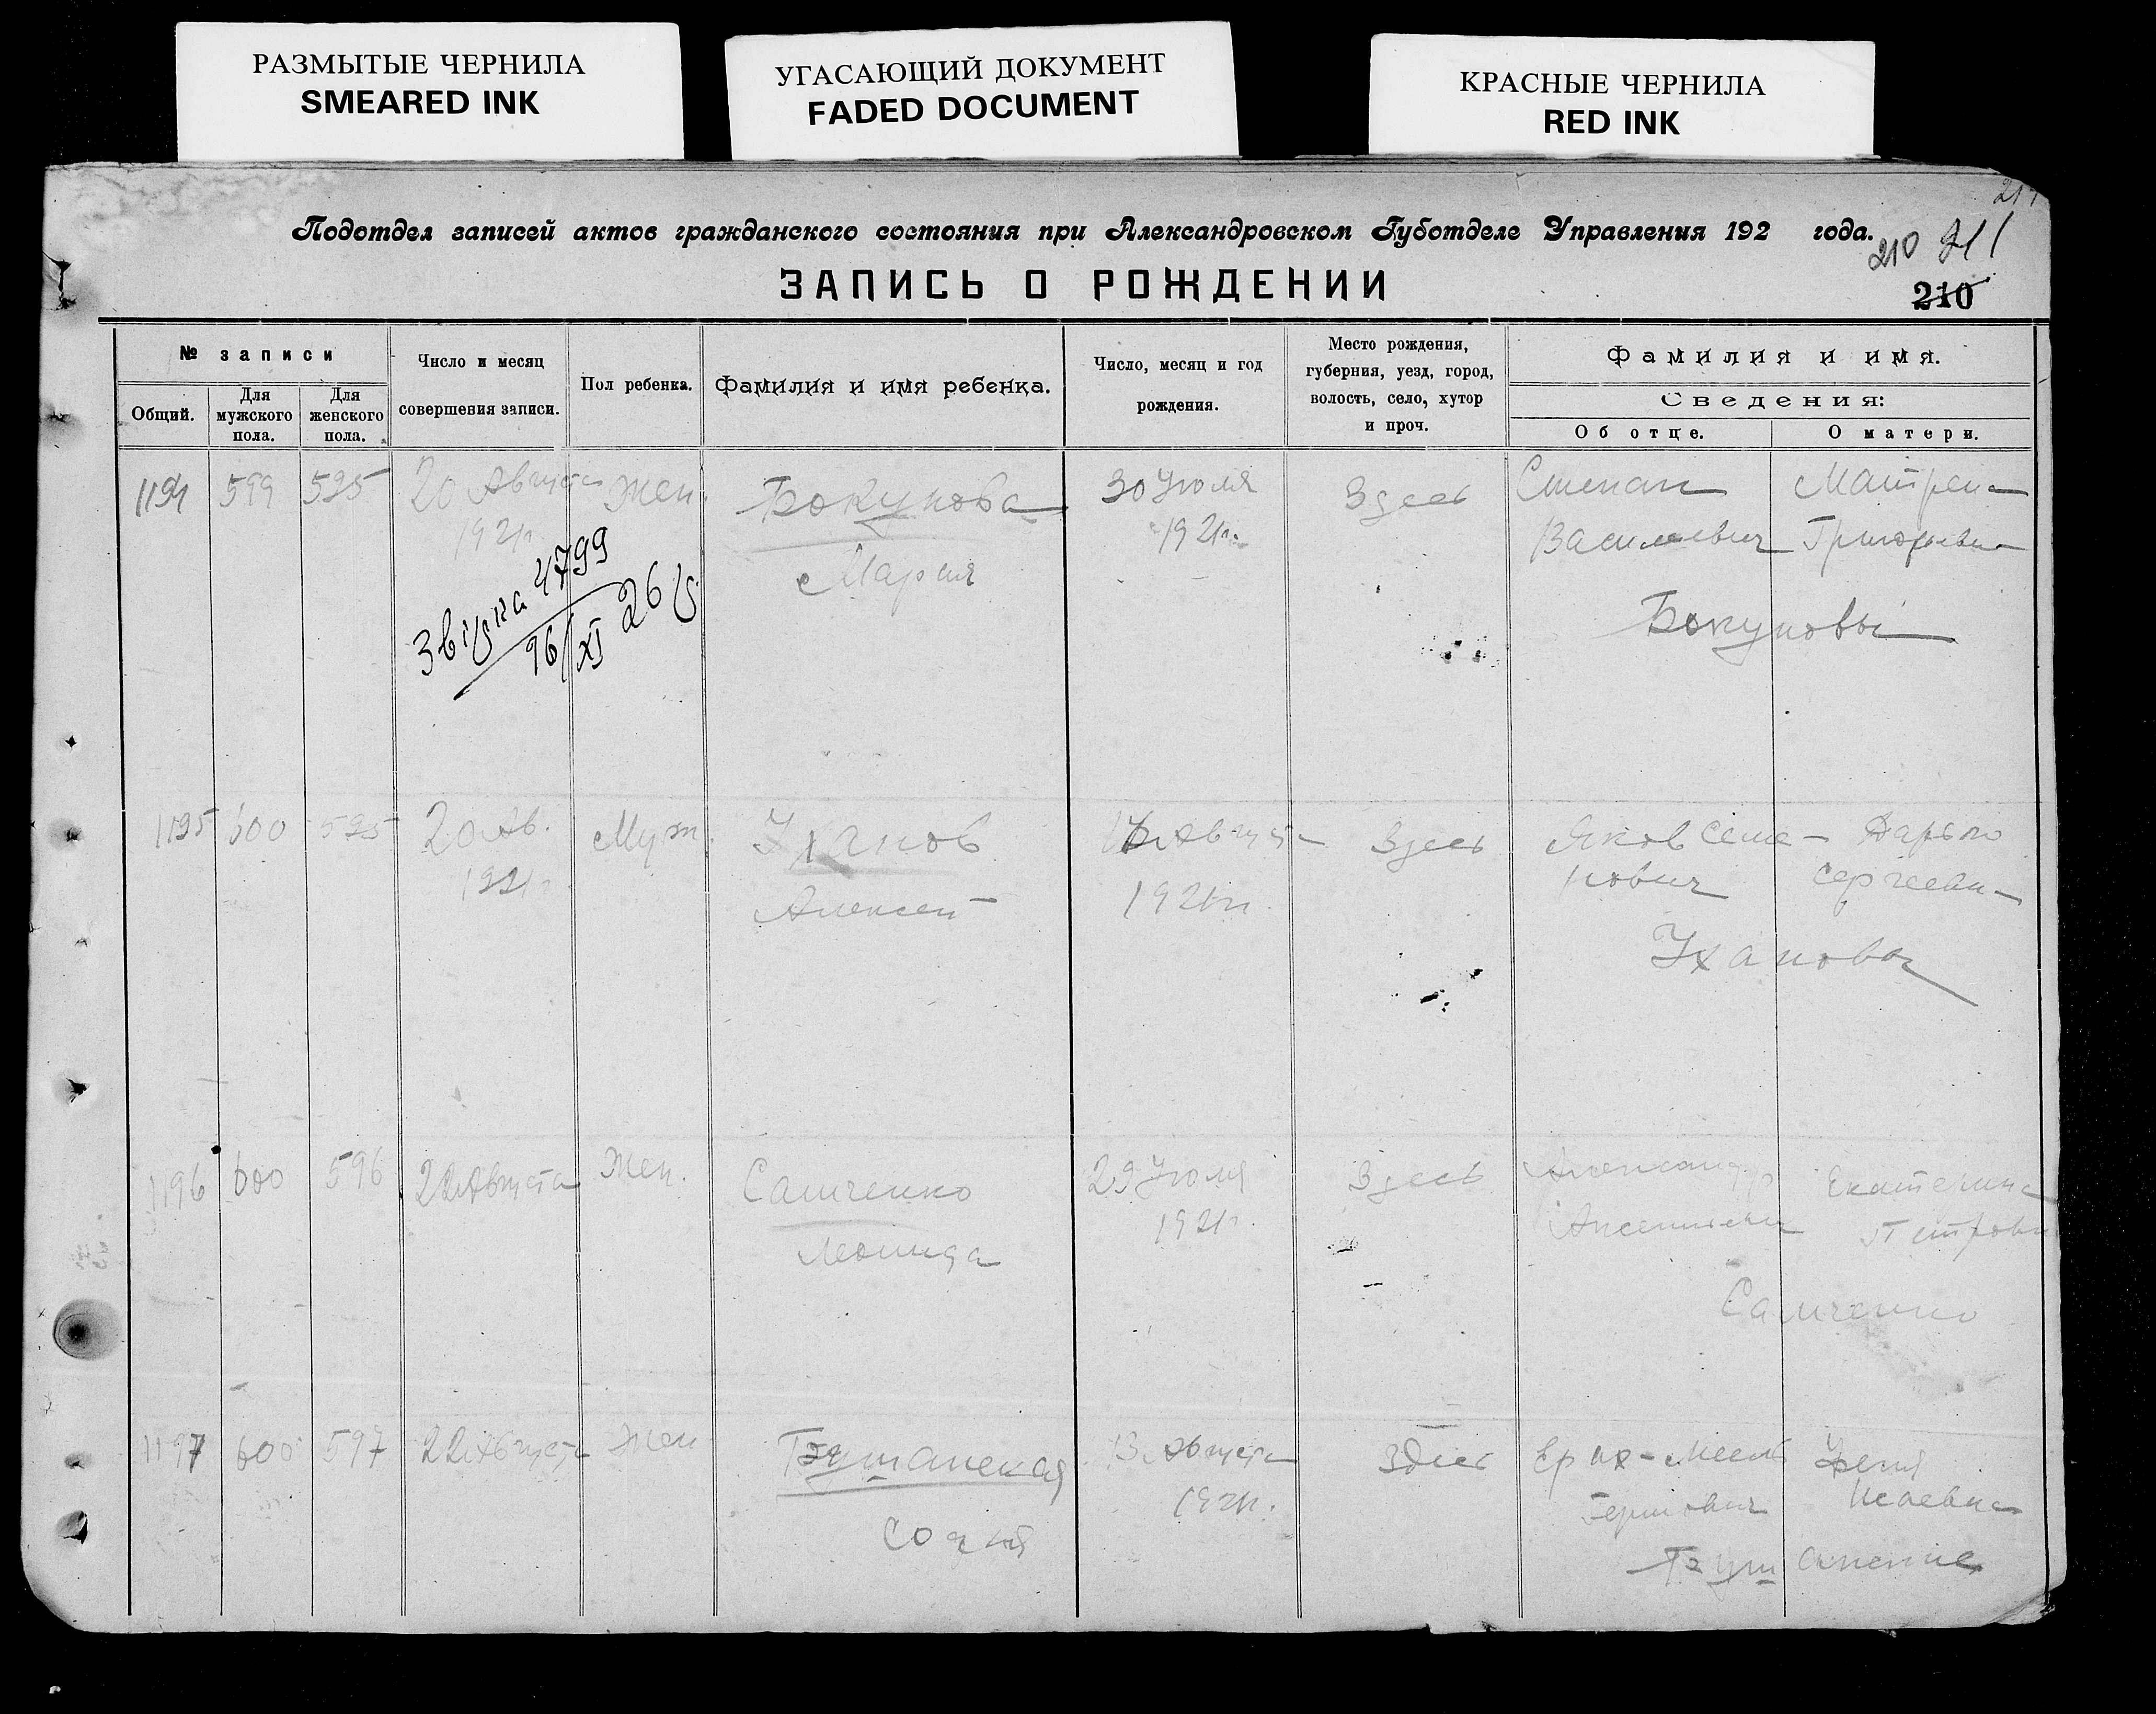 РАЗМЫТЫЕ ЧЕРНИЛА
SMEARED INK
УГАСАЮЩИЙ ДОКУМЕНТ
FADED DOCUMENT
КРАСНЫЕ ЧЕРНИЛА
RED INK
Подотдел записей актов гражданского состояния при Александровском Губотделе Управления 192 года.
210 211
ЗАПИСЬ О РОЖДЕНИИ
210
№ записи
Общий.
Для мужского пола.
Для женского пола.
Число и месяц
совершения записи.
Пол ребенка.
Фамилия и имя ребенка.
Число, месяц и год
рождения.
Место рождения,
губерния, уезд, город,
волость, село, хутор
и проч.
Фамилия и имя.
Сведения:
Об отце.
О матери.
1194 599 595 20 Августа Жен. Бокунова 30 Июля Здесь Степан Матрена
1921г. 1921г. Васильевич Григорьевна
Мария
4799
26/XI 26
Бокуновы
1195 600 595 20 Ав. Муж. Уханов Августа Здесь Яков Семе- Дарья
1921г. Алексей 1921г. нович Сергеевна
Ухановы
1196 600 596 22 Августа Жен. Самченко 29 Июля Здесь Александр Екатерина
1921г. Петровна
Самченко
1197 600 597 22 Августа Жен 13 Августа Здесь
1921г. Исаевна
София